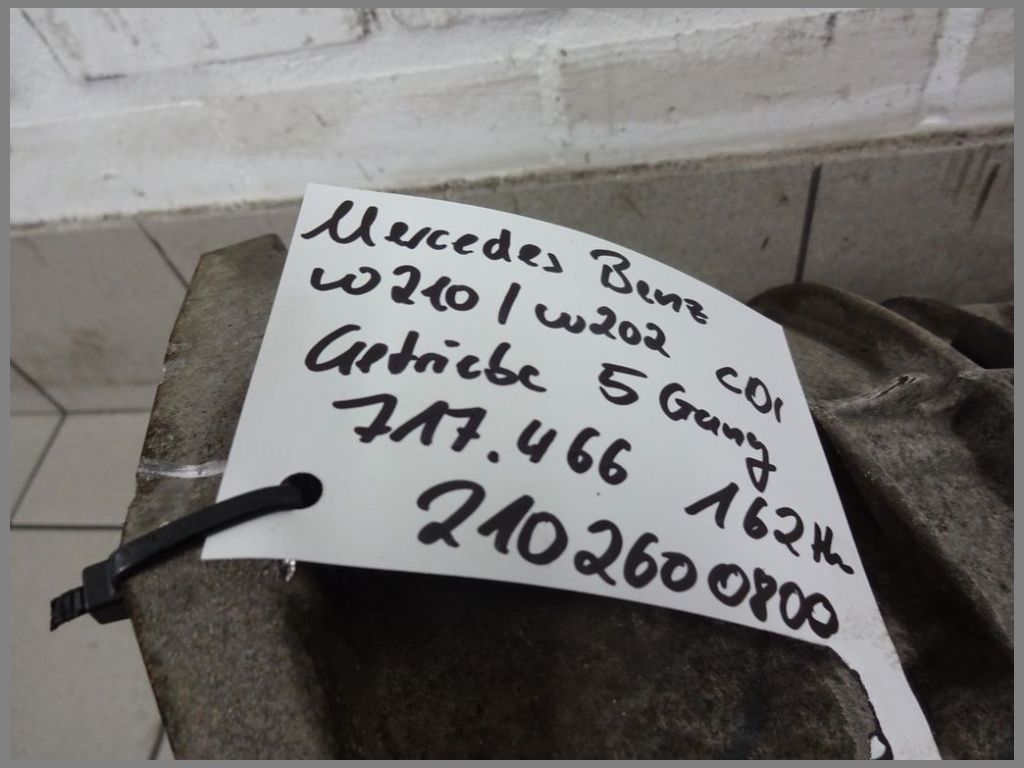 Mercedes Benz
W210 / W202 CDI
Getriebe 5 Gang
717.466 162th
2102600800